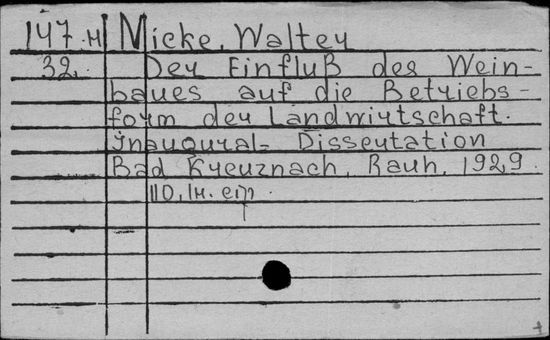 147.н Nicke, Walter
32. Der Einfluß des Wein-
baues auf die Betriebs-
form der Landwirtschaft.
Inaugural-Dissertation
Bad Kreuznach, Rauh, 1929.
110, IН. стр.